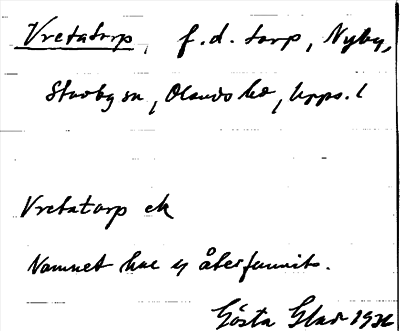 Vretatorp, f.d. torp, Nyby,
Stavby sn, Olands hd, Upps. l
Vretatorp ek
Namnet har ej återfunnits.
Gösta Glas 1936